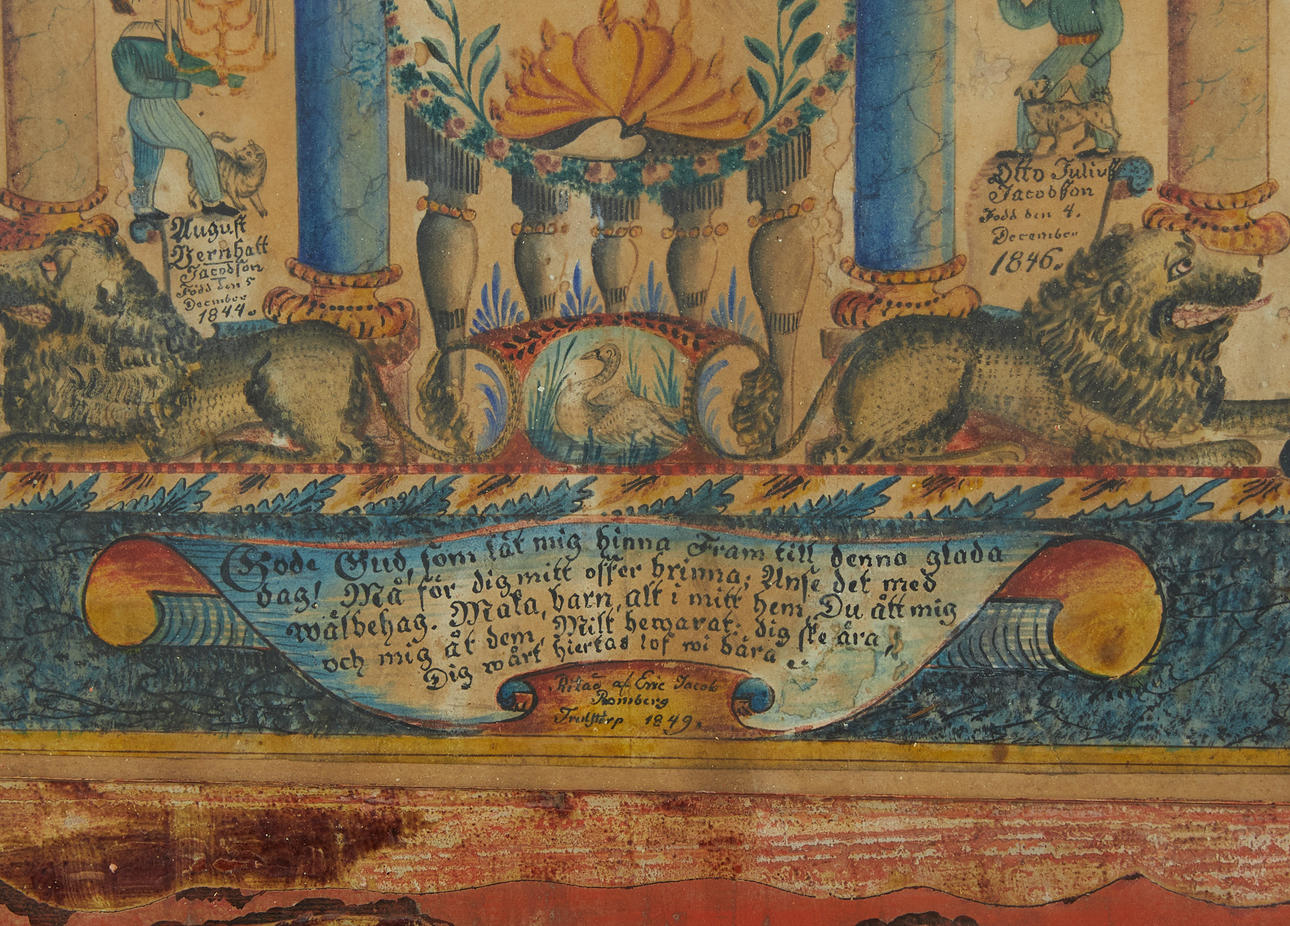 August
Bernhatt
Jacobson
Född den 5
December
1844.
Otto Julius
Jacobson
Född den 4.
December
1846.
Gode Gud, som låt mig hinna Fram till denna glada
dag! Må för dig mitt offer brinna; Anse det med
wälbehag. Maka, barn, alt i mitt hem, Du ått mig
och mig åt dem, Milt bewarat; dig ske ära,
Dig wårt hiertas lof wi bära
Ritad af Eric Jacob
Romberg
1849.